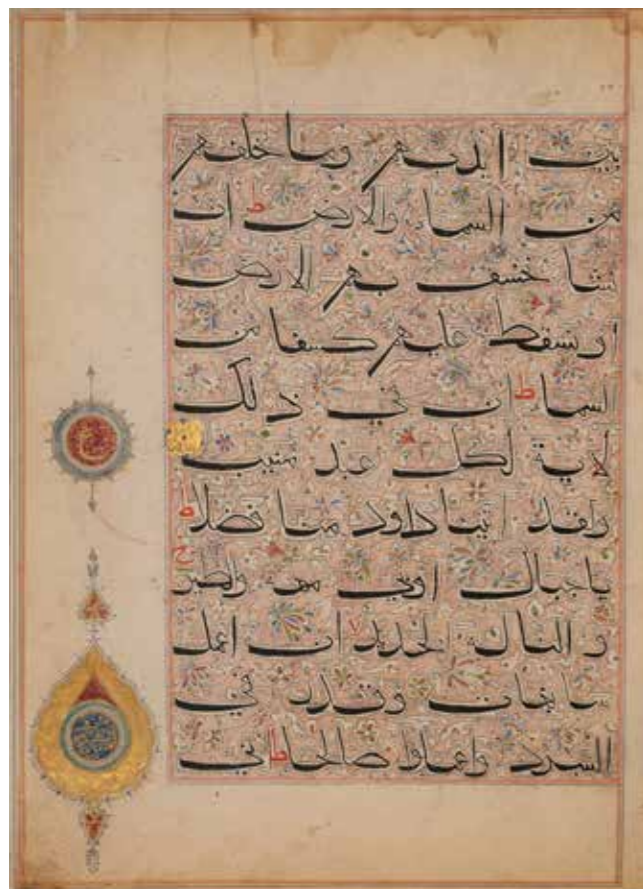 بين ايديهم وما خلفهم
من السماء والارض ط ان
نشا نخسف بهم الارض
او نسقط عليهم كسفا من
السما ط ان في ذلك
لاية لكل عبد منيب
ولقد اتينا داود منا فضلا ط
يا جبال اوبي معه والطير ج
والنا له الحديد لا ان اعمل
سابغات وقدر في
السرد واعملوا صالحا ط اني